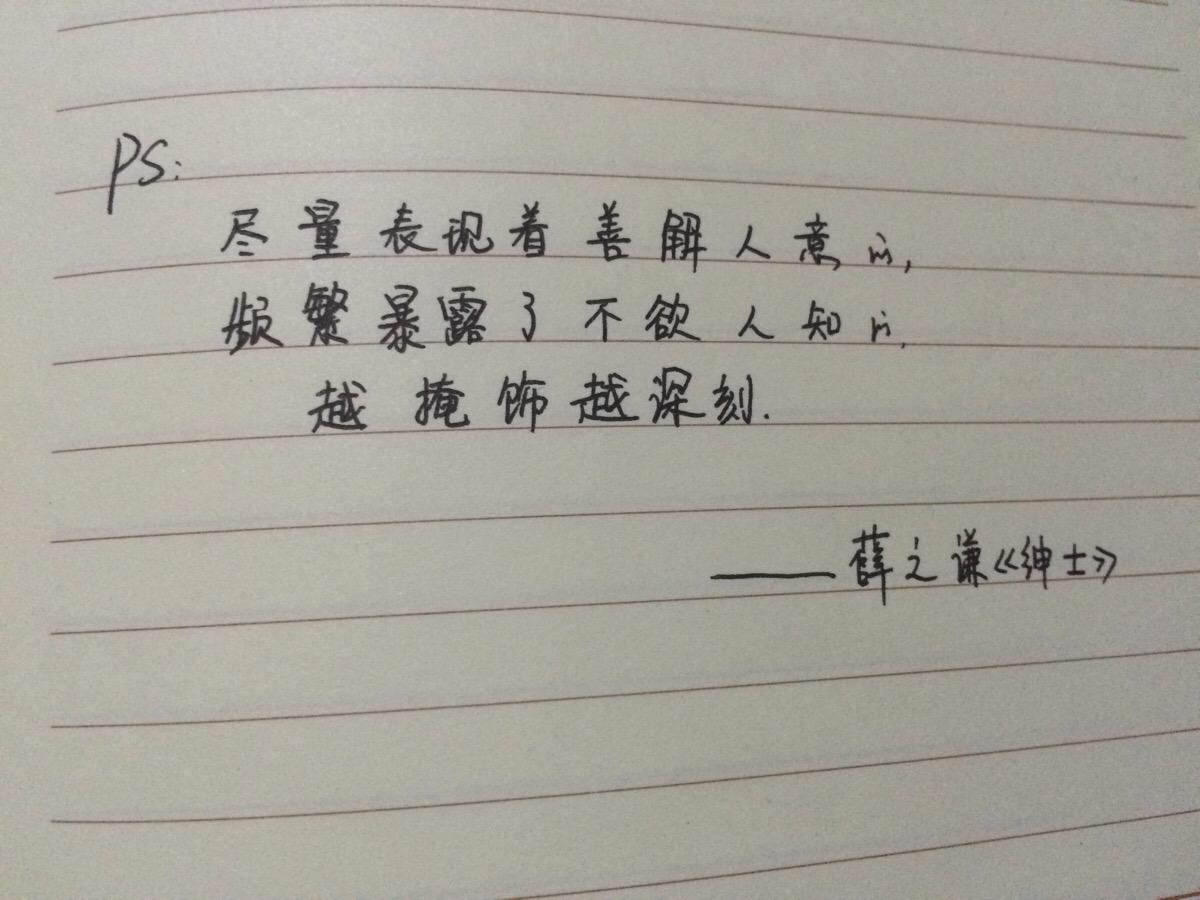 PS:
尽量表现着善解人意的,
频繁暴露了不欲人知的,
越掩饰越深刻.
——薛之谦《绅士》